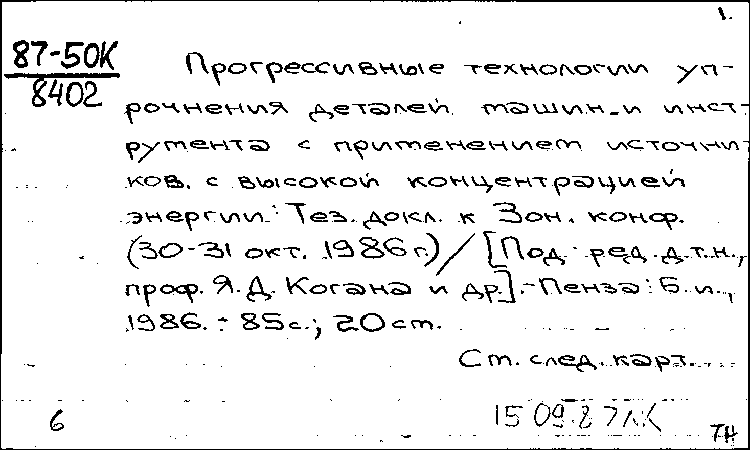 1.
87-50К
8402
Прогрессивные технологии уп-
рочнения деталей машин и инст-
румента с применением источни-
ков с высокой концентрацией
энергии: Тез. докл. к Зон. конф.
(30-31 окт. 1986 г.) / [Под ред. д.т.н.,
проф. Я. Д. Когана и др.]. - Пенза: Б. и.,
1986. - 85 с.; 20 ст.
Ст. след. карт.
6
15 09.87
ТН